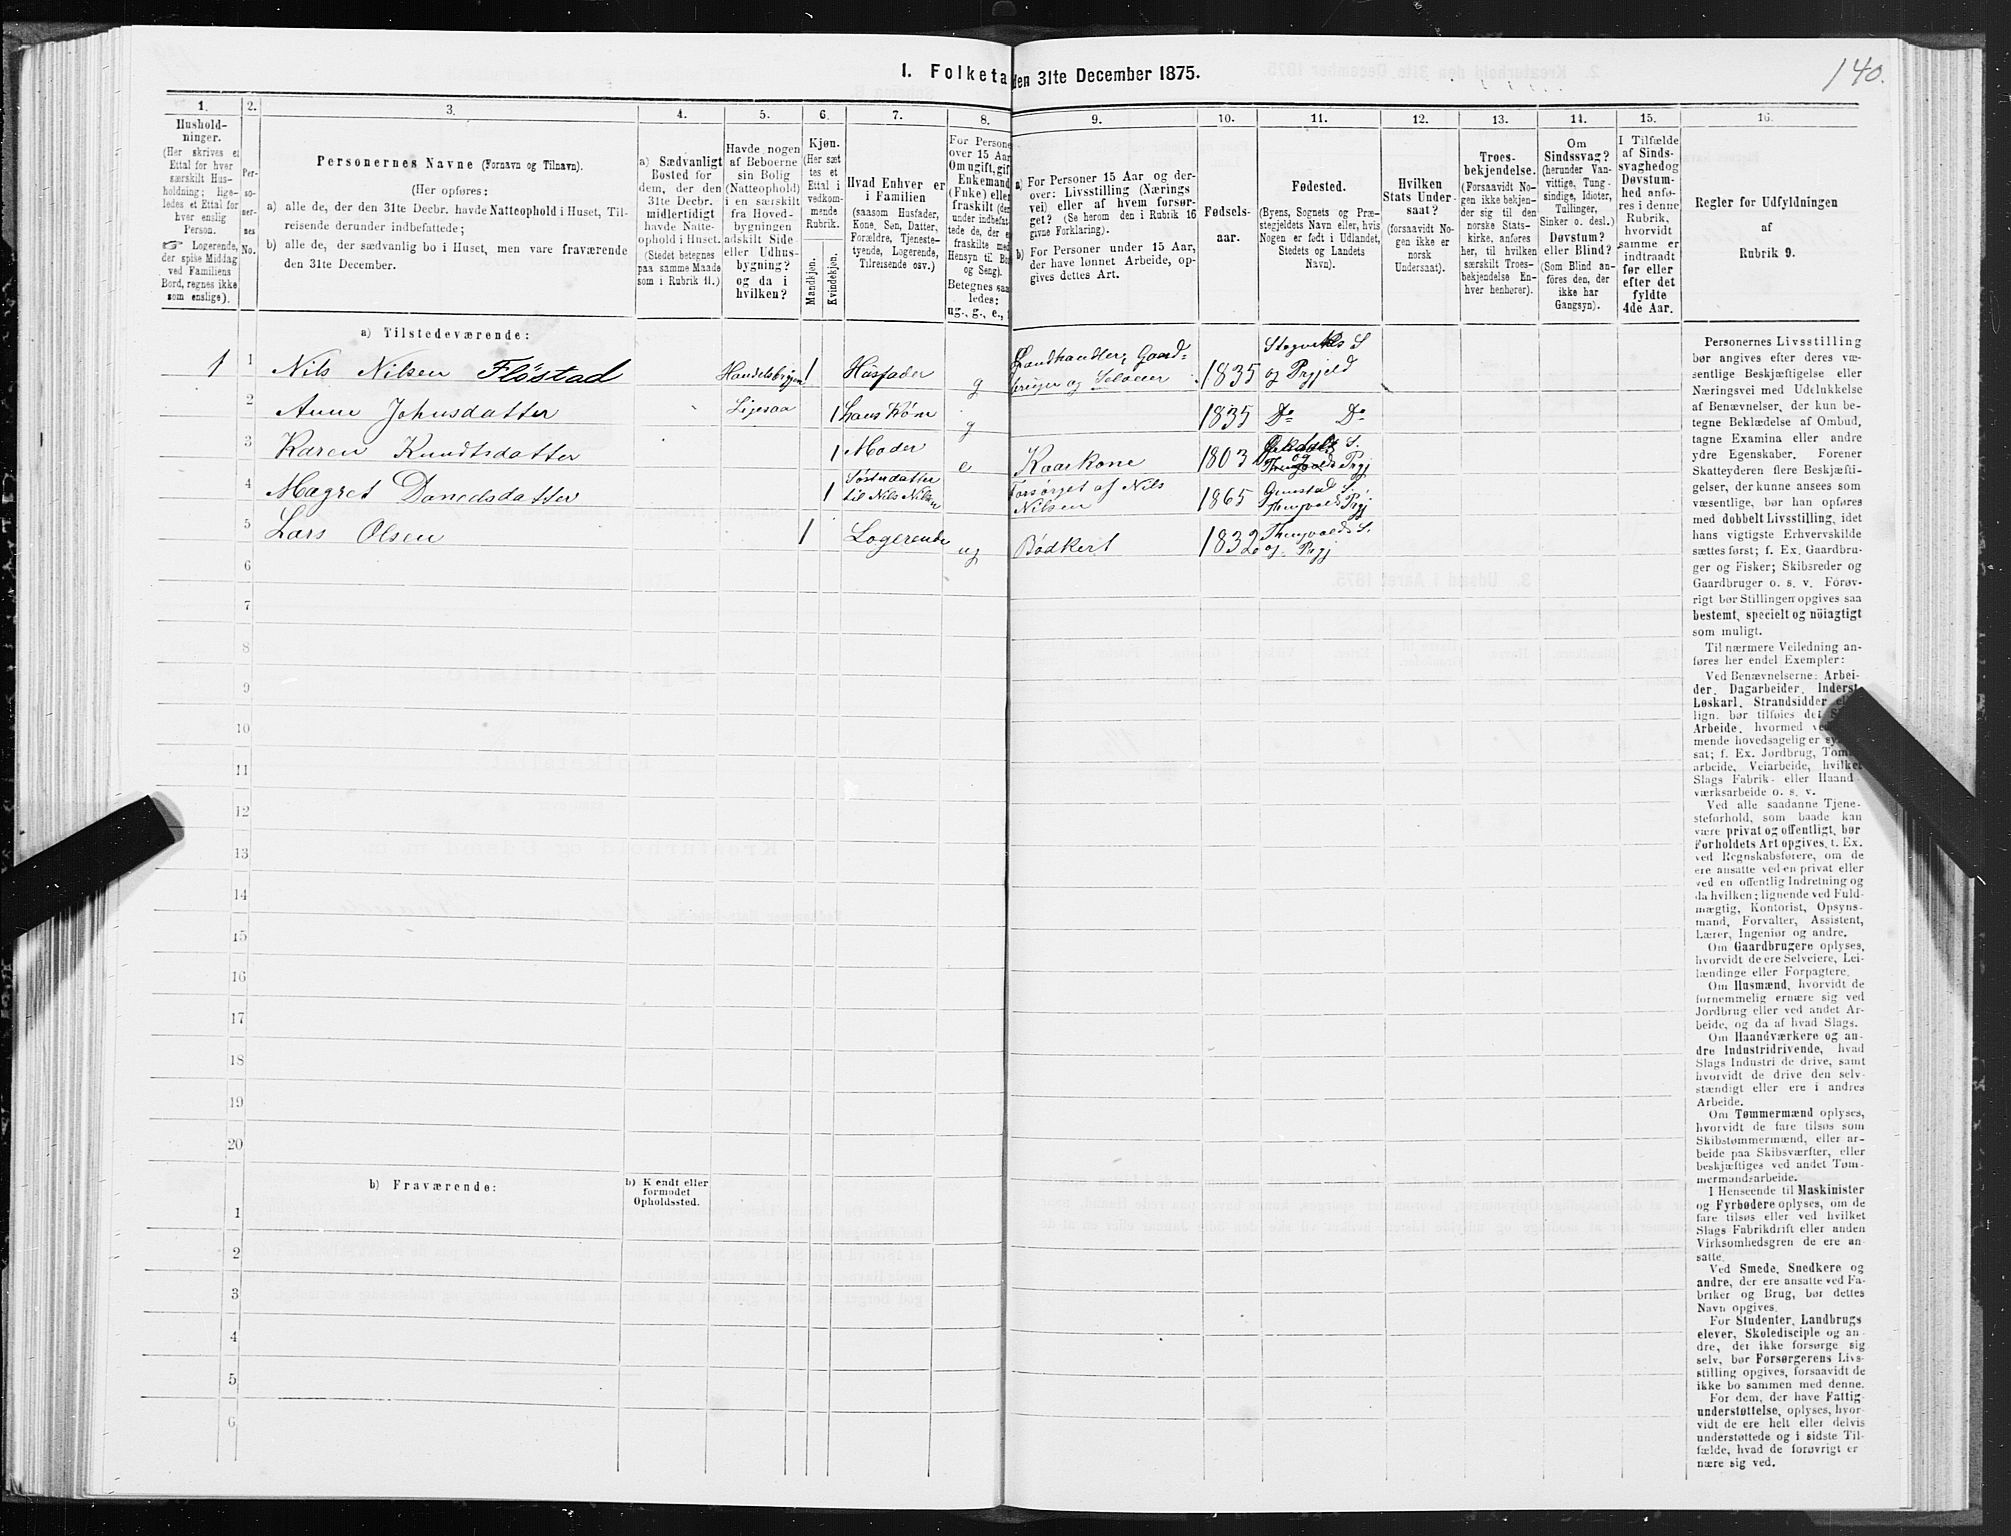 140.
I. Folketa
den 31te December 1875.
1. 2. 3. 4. 5. 6. 7. 8. 9. 10. 11. 12. 13. 14. 15. 16.
Hushold-
ninger.
(Her skrives et
Ettal for hver
særskilt Hus-
holdning; lige-
ledes et Ettal for
hver enslig
Person.
☞ Logerende,
der spise Middag
ved Familiens
Bord, regnes ikke
som enslige).
Per-
so-
ner-
nes
No.
Personernes Navne (Fornavn og Tilnavn).
(Her opføres:
a) alle de, der den 31te Decbr. havde Natteophold i Huset, Til-
reisende derunder indbefattede;
b) alle de, der sædvanlig bo i Huset, men vare fraværende
den 31te December.
a) Sædvanligt
Bosted for
dem, der den
31te Decbr.
midlertidigt
havde Natte-
ophold i Huset.
(Stedet betegnes
paa samme Maade
som i Rubrik 11.)
Havde nogen
af Beboerne
sin Bolig
(Natteophold)
i en særskilt
fra Hoved-
bygningen
adskilt Side-
eller Udhus-
bygning?
og da i
hvilken?
Kjøn.
(Her sæt-
tes et
Ettal i
vedkom-
mende
Rubrik.
Mandkjøn.
Kvindekjøn.
Hvad Enhver er
i Familien
(saasom Husfader,
Kone, Søn, Datter,
Forældre, Tjeneste-
tyende, Logerende,
Tilreisende osv.)
For Persone
over 15 Aar
Om ugift, gif
Enkemand
(Enke) eller
fraskilt (der
under indbefat
tede de, der e
fraskilte med
Hensyn til Bo
og Seng).
Betegnes saa
ledes:
ug., g., e.,
a) For Personer 15 Aar og der-
over: Livsstilling (Nærings-
vei) eller af hvem forsør-
get? (Se herom den i Rubrik 16
givne Forklaring).
b) For Personer under 15 Aar,
der have lønnet Arbeide, op-
gives dettes Art.
Fødsels-
aar.
Fødested.
(Byens, Sognets og Præ-
stegjeldets Navn eller, hvis
Nogen er født i Udlandet,
Stedets og Landets
Navn).
Hvilken
Stats Under-
saat?
(forsaavidt No-
gen ikke er
norsk
Undersaat).
Troes-
bekjendelse.
(Forsaavidt No-
gen ikke bekjen-
der sig til den
norske Stats-
kirke, anføres
her, til hvilken
særskilt Troes-
bekjendelse En-
hver henhører).
Om
Sindssvag?
(herunder Van-
vittige, Tung-
sindige, Idioter,
Tullinger,
Sinker o. desl.)
Døvstum?
eller Blind?
(Som Blind an-
føres den, der
ikke har
Gangsyn).
I Tilfælde
af Sinds-
svaghed og
Døvstum-
hed anfø-
res i denne
Rubrik,
hvorvidt
samme er
indtraadt
før eller
efter det
fyldte
4de Aar.
Regler for Udfyldningen
af
Rubrik 9.
a) Tilstedeværende:
1 1 Nils Nilsen Flöstad Handelsbrygen 1 Husfader g Landhandler, Gaard-
bruger og Seloeier 1835 og Prgjeld
2 Anne Johnsdatter Ligesaa 1 hans Kone g 1835 Do Do
3 Karen Knudtsdatter 1 Moder e Kaarkone 1803
4 Magret 1 Søsterdatter
til Nils Nilsen Forsørget af Nils
Nilsen 1865
5 Lars Olsen 1 Logerende ug Bødkert 1832 og Prgj
6
7
8
9
10
11
12
13
14
15
16
17
18
19
20
b) Fraværende:
b) Kendt eller
formodet
Opholdssted.
1
2
3
4
5
6
Personernes Livsstilling
bør angives efter deres væ-
sentlige Beskjæftigelse eller
Næringsvei med Udelukkelse
af Benævnelser, der kun be-
tegne Beklædelse af Ombud,
tagne Examina eller andre
ydre Egenskaber. Forener
Skatteyderen flere Beskjæfti-
gelser, der kunne ansees som
væsentlige, bør han opføres
med dobbelt Livsstilling, idet
hans vigtigste Erhvervskilde
sættes først; f. Ex. Gaardbru-
ger og Fisker; Skibsreder og
Gaardbruger o. s. v. Forøv-
rigt bør Stillingen opgives saa
bestemt, specielt og nöiagtigt
som muligt.
Til nærmere Veiledning an-
føres her endel Exempler:
Ved Benævnelserne: Arbei-
der, Dagarbeider, Inderst,
Løskarl, Strandsidder
lign. bør tilføies det
Arbeide, hvormed
mende hovedsagelig er
sat; f. Ex. Jordbrug,
arbeide, Veiarbeide, hvilket
Slags Fabrik- eller Haand-
værksarbeide o. s. v.
Ved alle saadanne Tjene-
steforhold, som baade kan
være privat og offentligt, bør
Forholdets Art opgives, f. Ex.
ved Regnskabsførere, om de
ere ansatte ved en privat eller
ved en offentlig Indretning og
da hvilken; lignende ved Fuld-
mægtig, Kontorist, Opsyns-
mand, Forvalter, Assistent,
Lærer, Ingeniør og andre.
Om Gaardbrugere oplyses,
hvorvidt de ere Selveiere, Lei-
lændinge eller Forpagtere.
Om Husmænd, hvorvidt de
fornemmelig ernære sig ved
Jordbrug eller ved andet Ar-
beide, og da af hvad Slags.
Om Haandværkere og an-
dre Industridrivende, hvad
Slags Industri de drive, samt
hvorvidt de drive den selv-
stændigt eller ere i andres
Arbeide.
Om Tømmermænd oplyses,
hvorvidt de fare tilsøs som
Skibstømmermænd, eller ar-
beide paa Skibsværfter, eller
beskjæftiges ved andet Tøm-
mermandsarbeide.
I Henseende til Maskinister
og Fyrbødere oplyses, om de
fare tilsøs eller ved hvilket
Slags Fabrikdrift eller anden
Virksomhedsgren de ere an-
satte.
Ved Smede, Snedkere og
andre, der ere ansatte ved Fa-
briker og Brug, bør dettes
Navn opgives.
For Studenter, Landbrugs-
elever, Skoledisciple og an-
dre, der ikke forsørge sig
selv, bør Forsørgerens Livs-
stilling opgives, forsaavidt de
ikke bo sammen med denne.
For dem, der have Fattig-
understøttelse, oplyses, hvor-
vidt de ere helt eller delvis
understøttede og i sidste Til-
fælde, hvad de forøvrigt er-
nære sig ved.